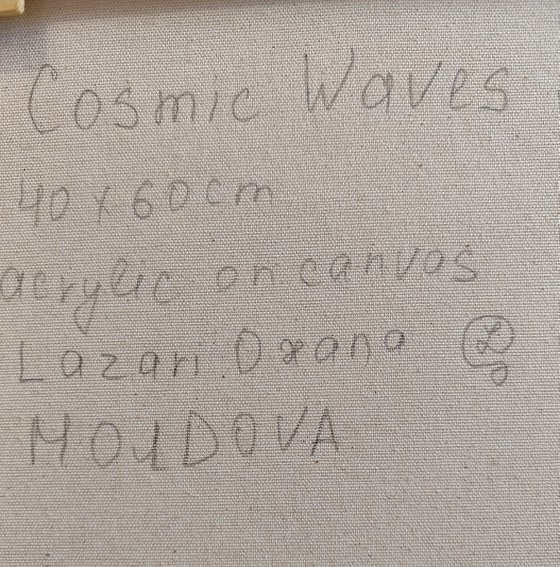 Cosmic Waves
40 x 60 cm
acrylic on canvas
Lazari Oxana
MOLDOVA